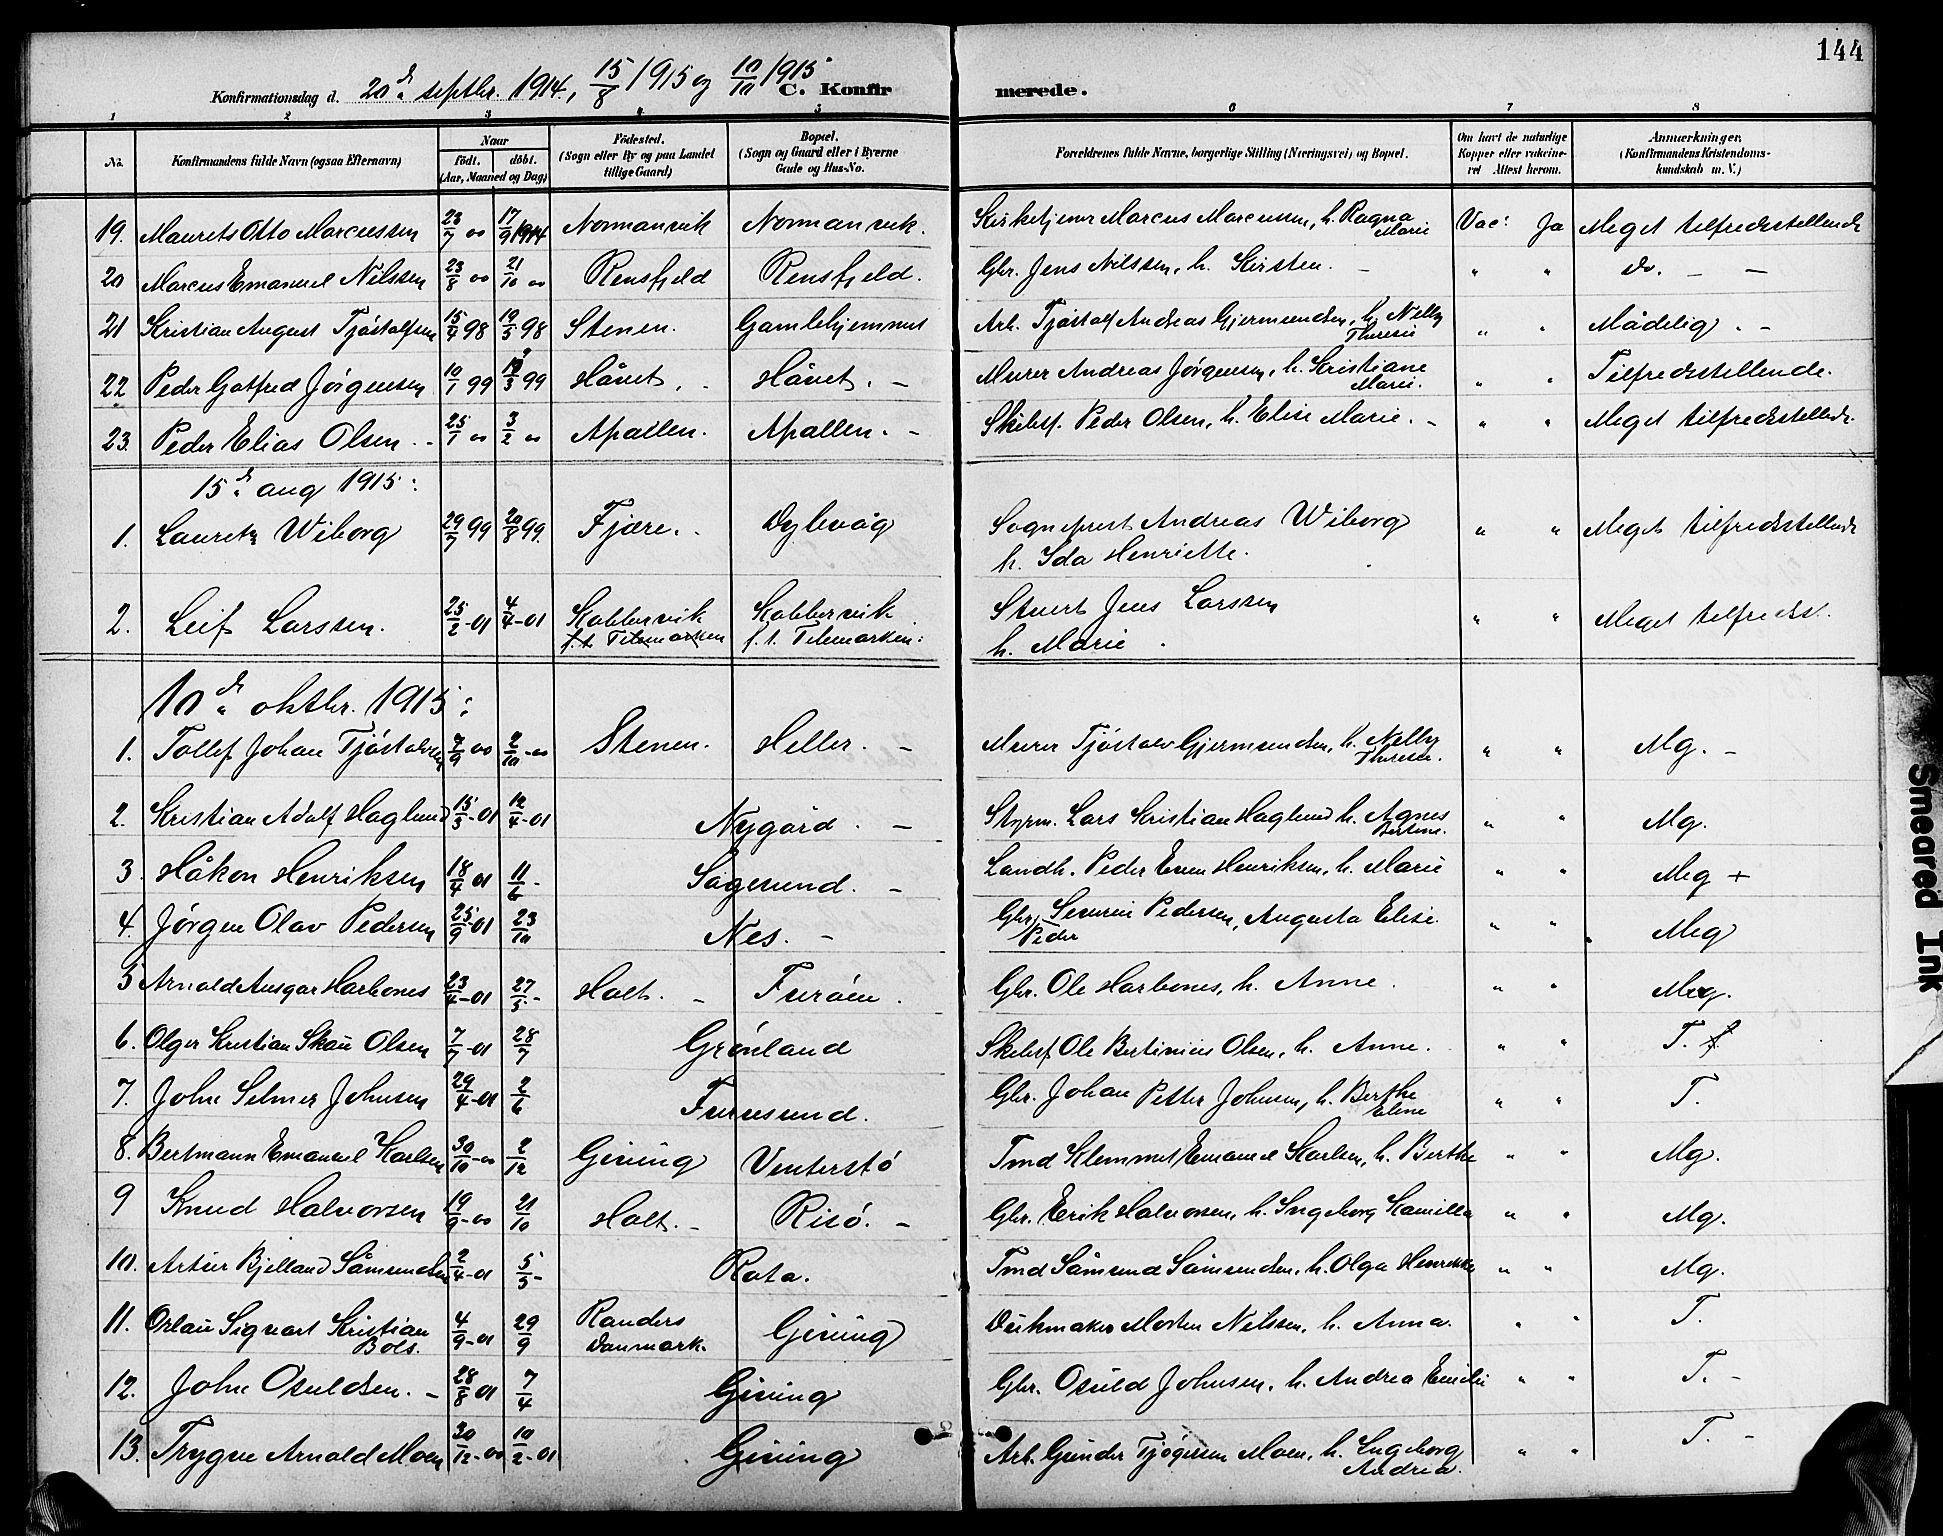 144
Konfirmationsdag d. 20de septbr. 1914, 15/8 1915 og 10/10 1915 C. Konfirmerede.
1 2 3 4 5 6 7 8
No. Konfirmandens fulde Navn (ogsaa Efternavn) Naar födt. döbt. (Aar, Maaned og Dag) Födested. (Sogn eller By og paa Landet tillige Gaard) Bopæl. (Sogn og Gaard eller i Byerne Gade og Hus-No. Forældrenes fulde Navne, borgerlige Stilling (Næringsvei) og Bopæl. Om havt de naturlige Kopper eller vakcineret Attest herom. Anmærkninger. (Konfirmandens Kristendomskundskab m. V.)
19. Maurets Otto Marcussen 23/7 00 17/9 1914 Normanvik Normanvik. Kirketjener Marcus Marcussen, h. Ragna Marie Vac: Ja Meget tilfredsstellende
20 Marcus Emanuel Nilssen 23/8 00 21/10 00 Rensfjeld Rensfjeld. Gbr. Jens Nilssen, h. Kirsten. – " " do. – –
21 Kristian August Tjöstalfsen 15/4 98 19/5 98 Stenen. Gamlehjemmet Arb. Tjöstalf Andreas Gjermundsen, h. Nelly Theresie " " Mådelig . –
22 Peder Gotfred Jörgensen 10/1 99 12/3 99 Håvet. – Håvet. – Murer Andreas Jörgensen, h. Kristiane Marie. " " Tilfredsstellende.
23. Peder Elias Olsen. – 25/1 00 3/2 00 Apallen. Apallen. – Skibsf. Peder Olsen, h. Elise Marie. – " " Meget tilfredsstellende.
15de aug 1915:
1. Lauretz Wiborg 29/7 99 20/8 99. Fjære. Dybvåg Sogneprest Andreas Wiborg h. Ida Henriette. " " Meget tilfredsstellende
2. Leif Larssen. 25/2-01 4/4-01 Kabbervik f. t. Telemarken Kabbervik f. t. Telemarken. Stuert Jens Larssen h. Marie " " Meget tilfredsst.
10de oktbr. 1915:
1. Tollef Johan Tjöstalvsen 7/9 00 2/10-00 Stenen. Heller. – Murer Tjöstalv Gjermundsen, h. Nelly Theresie. " " Mg. –
2. Kristian Adolf Haglund 15/3-01 12/4-01 Nygård. – Styrm. Lars Kristian Haglund h. Agnes Bertine. " " Mg.
3. Håkon Henriksen 18/4 01 11/6 - Sagesund. – Landh. Peder Even Henriksen, h. Marie " " Meg +
4. Jörgen Olav Pedersen 25/9-01 23/10 Nes. – Gbr. Severin Peder Pedersen, Augusta Elise. " " Meg
5 Arnold Ansgar Harbones 23/4-01 27/5- Holt. – Furöen. Gbr. Ole Harbones, h. Anne. " " Meg.
6. Olger Kristian Skau Olsen 7/7-01 28/7 Grönland Skibsf. Ole Bertinius Olsen, h. Anne. " " T.
7. John Selmer Johnsen 29/4-01 2/6 Furuesund. Gbr. Johan Petter Johnsen, h. Berthe Eline " " T.
8. Bertmann Emanuel Karlsen 30/10-00 2/12 Giving Venterstö Tmd Klemmet Emanuel Karlsen, h. Berthe " " Mg.
9 Knud Halvorsen 19/9-00 21/10 Holt. – Risö. – Gbr. Erik Halvorsen, h. Ingeborg Kamilla " " Mg.
10. Artur Bjelland Såmundsen 2/4-01 5/5- Rota. Tmd Såmund Såmundsen, h. Olga Henrikke " " Mg.
11. Orlau Sigvart Kristian Bols. 4/9-01 29/9 Randers Danmark. Giving Dukmaker Morten Nilssen, h. Anna. " " T.
12. John Osuldsen. – 28/8 01 7/4 Giving Gbr. Osuld Johnsen, h. Andrea Emilie " " T. –
13. Trygve Arnold Moen 20/12-00 10/2-01 Giving Arb. Gunder Tjögersen Moen, h. Ingeborg Andrea. " " T. –
Smeared Ink